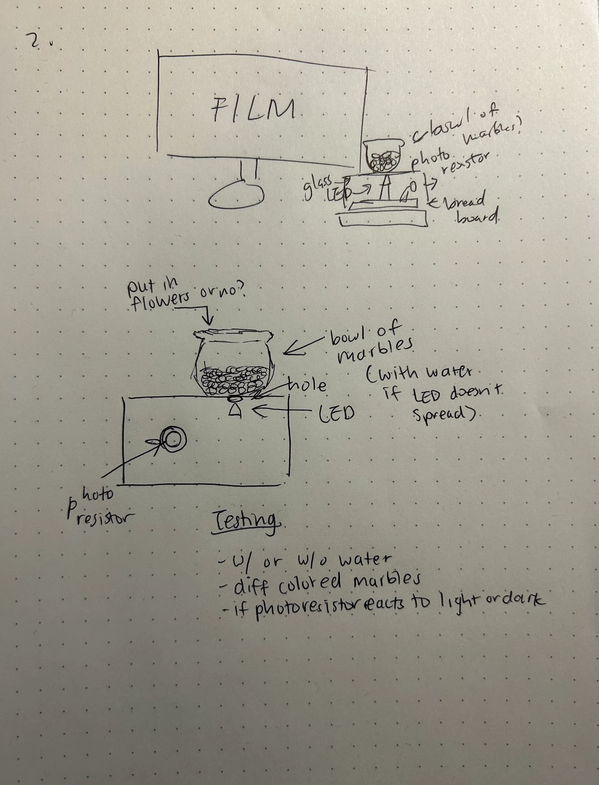 2.
FILM
bowl of
marbles?
photo
resistor
glass
LED
bread
board
put in
flowers or no?
bowl of
marbles
(with water
if LED doesn't
spread)
hole
LED
photo
resistor
Testing
- w/ or w/o water
- diff colored marbles
- if photoresistor reacts to light or dark